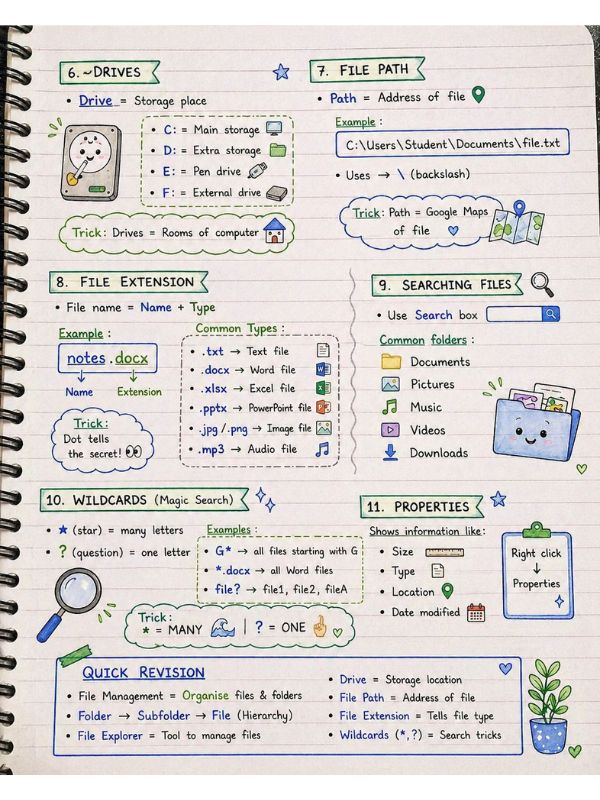 6. ~DRIVES
• Drive = Storage place
• C: = Main storage
• D: = Extra storage
• E: = Pen drive
• F: = External drive
Trick: Drives = Rooms of computer
7. FILE PATH
• Path = Address of file
Example:
C:\Users\Student\Documents\file.txt
• Uses → \ (backslash)
Trick: Path = Google Maps
of file
8. FILE EXTENSION
• File name = Name + Type
Example:
notes.docx
Name Extension
Trick:
Dot tells
the secret!
Common Types:
• .txt → Text file
• .docx → Word file
• .xlsx → Excel file
• .pptx → PowerPoint file
• .jpg/.png → Image file
• .mp3 → Audio file
9. SEARCHING FILES
• Use Search box
Common folders:
Documents
Pictures
Music
Videos
Downloads
10. WILDCARDS (Magic Search)
• ★ (star) = many letters
• ? (question) = one letter
Examples:
• G* → all files starting with G
• *.docx → all Word files
• file? → file1, file2, fileA
Trick:
* = MANY | ? = ONE
11. PROPERTIES
Shows information like:
• Size
• Type
• Location
• Date modified
Right click
↓
Properties
QUICK REVISION
• File Management = Organise files & folders
• Folder → Subfolder → File (Hierarchy)
• File Explorer = Tool to manage files
• Drive = Storage location
• File Path = Address of file
• File Extension = Tells file type
• Wildcards (*,?) = Search tricks